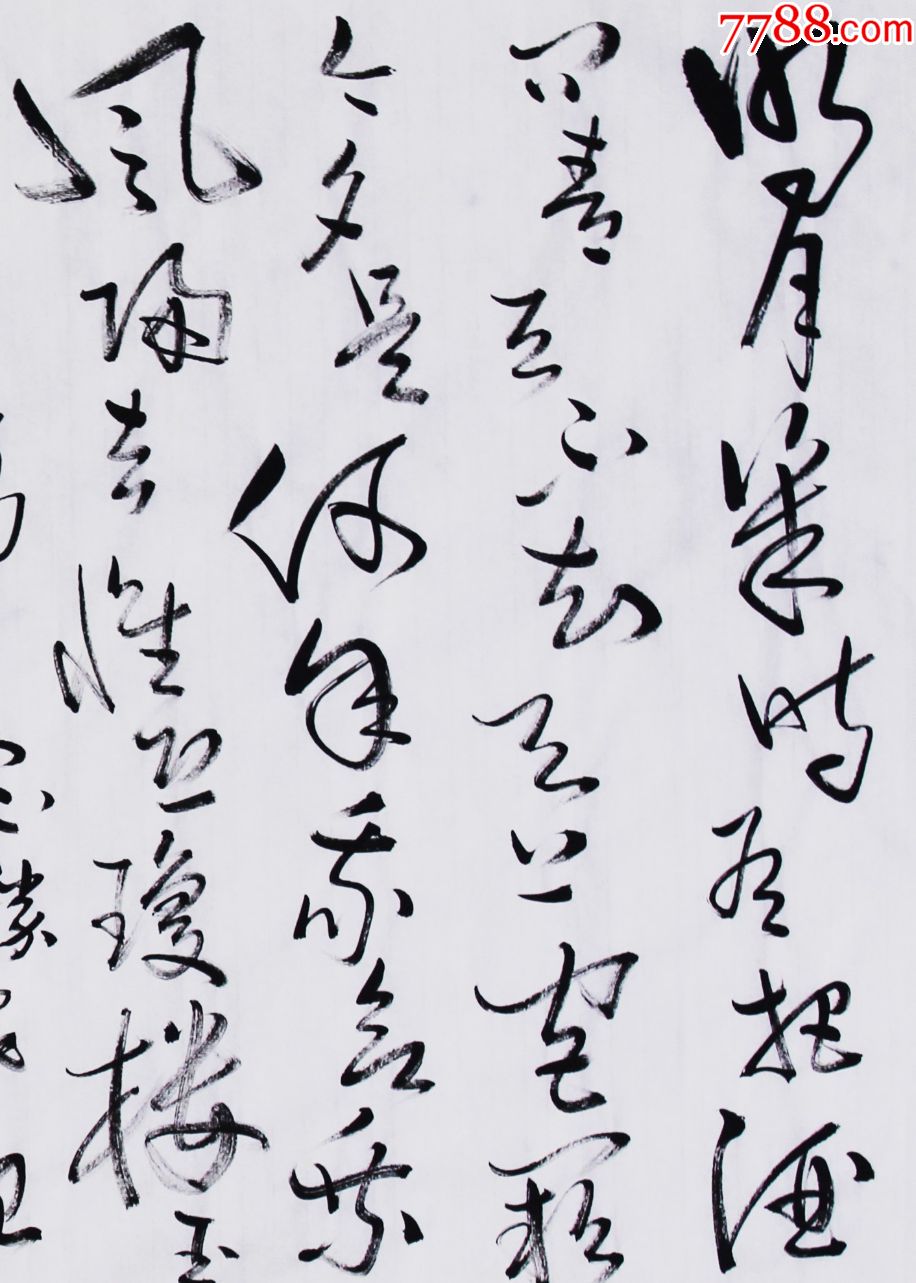 7788.com
明月幾時有把酒
问青天不知天上宫闕
今夕是何年我欲乘
風歸去惟恐瓊樓玉